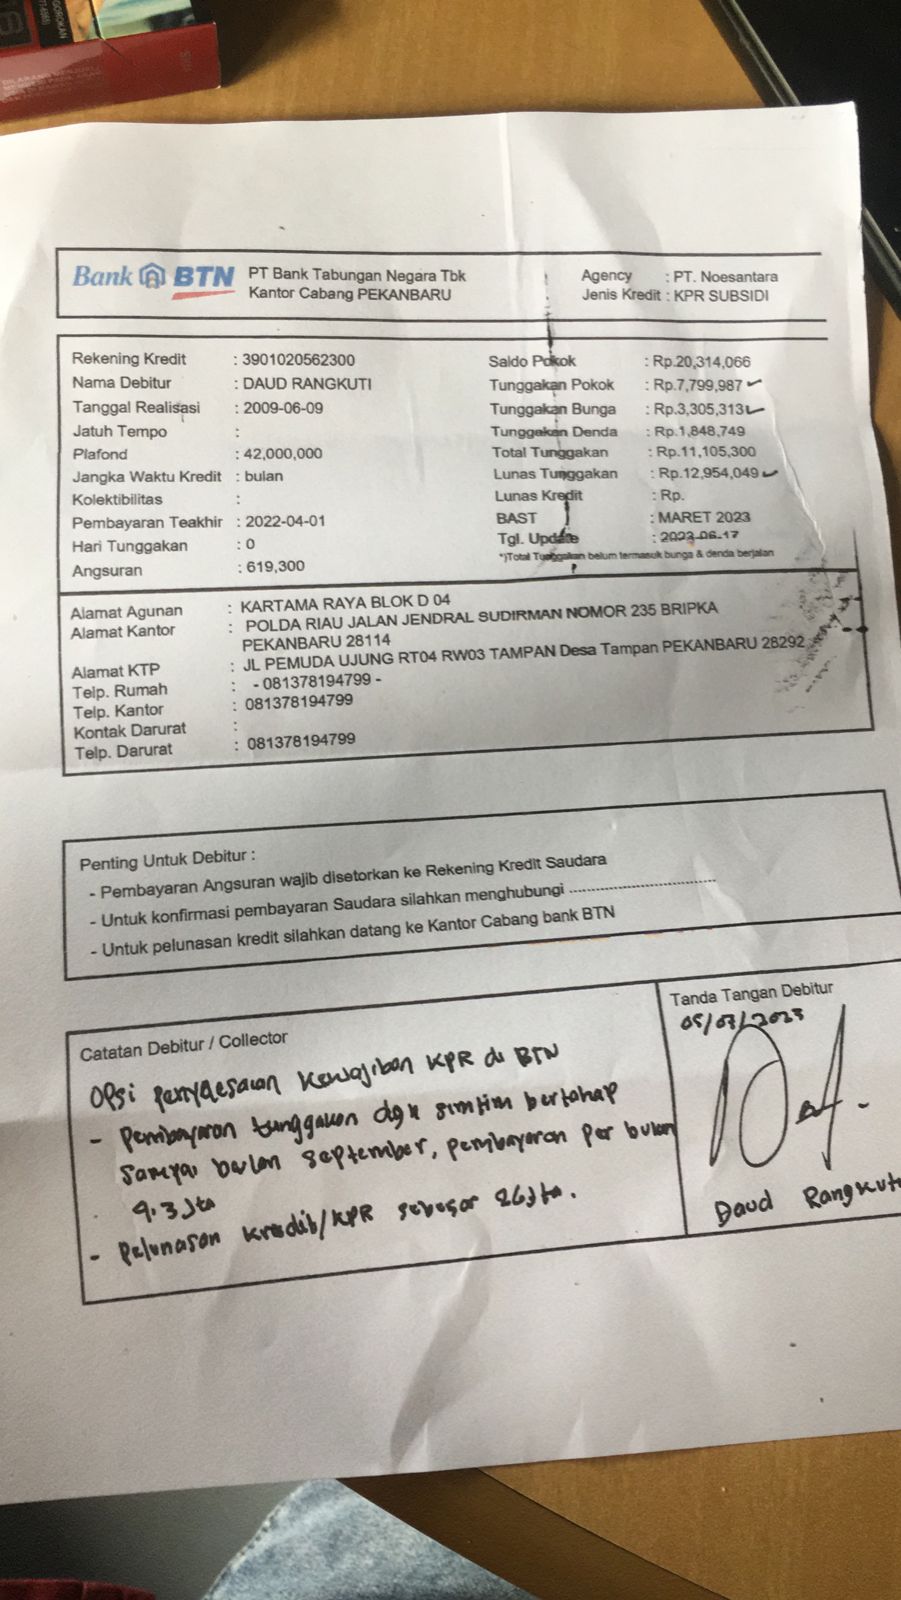 GOROKAN
Bank BTN PT Bank Tabungan Negara Tbk
Kantor Cabang PEKANBARU
Agency : PT. Noesantara
Jenis Kredit : KPR SUBSIDI
Rekening Kredit : 3901020562300
Nama Debitur : DAUD RANGKUTI
Tanggal Realisasi : 2009-06-09
Jatuh Tempo :
Plafond : 42,000,000
Jangka Waktu Kredit : bulan
Kolektibilitas :
Pembayaran Teakhir : 2022-04-01
Hari Tunggakan : 0
Angsuran : 619,300
Saldo Pokok : Rp.20,314,066
Tunggakan Pokok : Rp.7,799,987
Tunggakan Bunga : Rp.3,305,313
Tunggakan Denda : Rp.1,848,749
Total Tunggakan : Rp.11,105,300
Lunas Tunggakan : Rp.12,954,049
Lunas Kredit : Rp.
BAST : MARET 2023
Tgl. Update : 2023-06-17
*)Total Tunggakan belum termasuk bunga & denda berjalan
Alamat Agunan : KARTAMA RAYA BLOK D 04
Alamat Kantor : POLDA RIAU JALAN JENDRAL SUDIRMAN NOMOR 235 BRIPKA
PEKANBARU 28114
Alamat KTP : JL PEMUDA UJUNG RT04 RW03 TAMPAN Desa Tampan PEKANBARU 28292
Telp. Rumah : - 081378194799 -
Telp. Kantor : 081378194799
Kontak Darurat :
Telp. Darurat : 081378194799
Penting Untuk Debitur :
- Pembayaran Angsuran wajib disetorkan ke Rekening Kredit Saudara
- Untuk konfirmasi pembayaran Saudara silahkan menghubungi ..................................
- Untuk pelunasan kredit silahkan datang ke Kantor Cabang bank BTN
Catatan Debitur / Collector
Opsi penyelesaian kewajiban KPR di BTN
- Pembayaran tunggakan dgn sistim bertahap
sampai bulan september, pembayaran per bulan
4.3 Jta
- Pelunasan kredit/KPR sebesar 26 Jta.
Tanda Tangan Debitur
05/07/2023
Daud Rangkuti